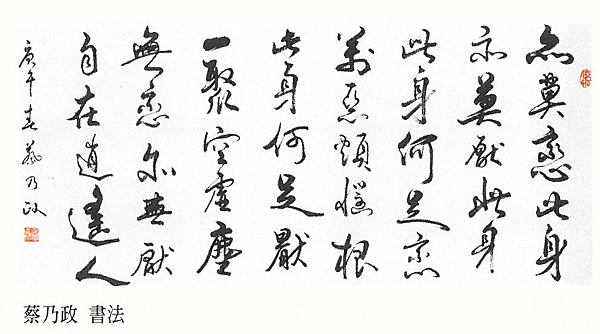 亦莫戀此身
亦莫厭此身
此身何足戀
萬惡煩惱根
此身何足厭
一聚空虛塵
無戀亦無厭
自在逍遙人
庚午春 蔡乃政
蔡乃政 書法